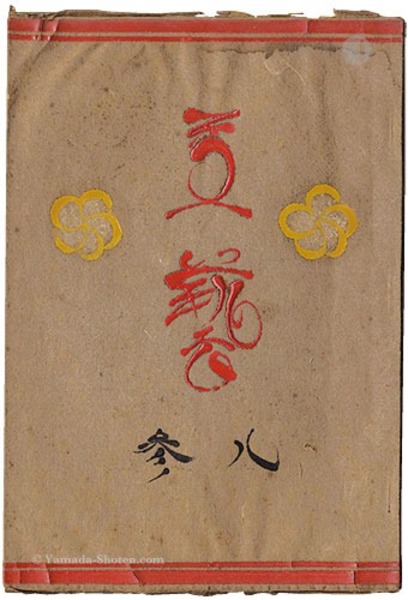 藝
参 八
© Yamada-Shoten.com